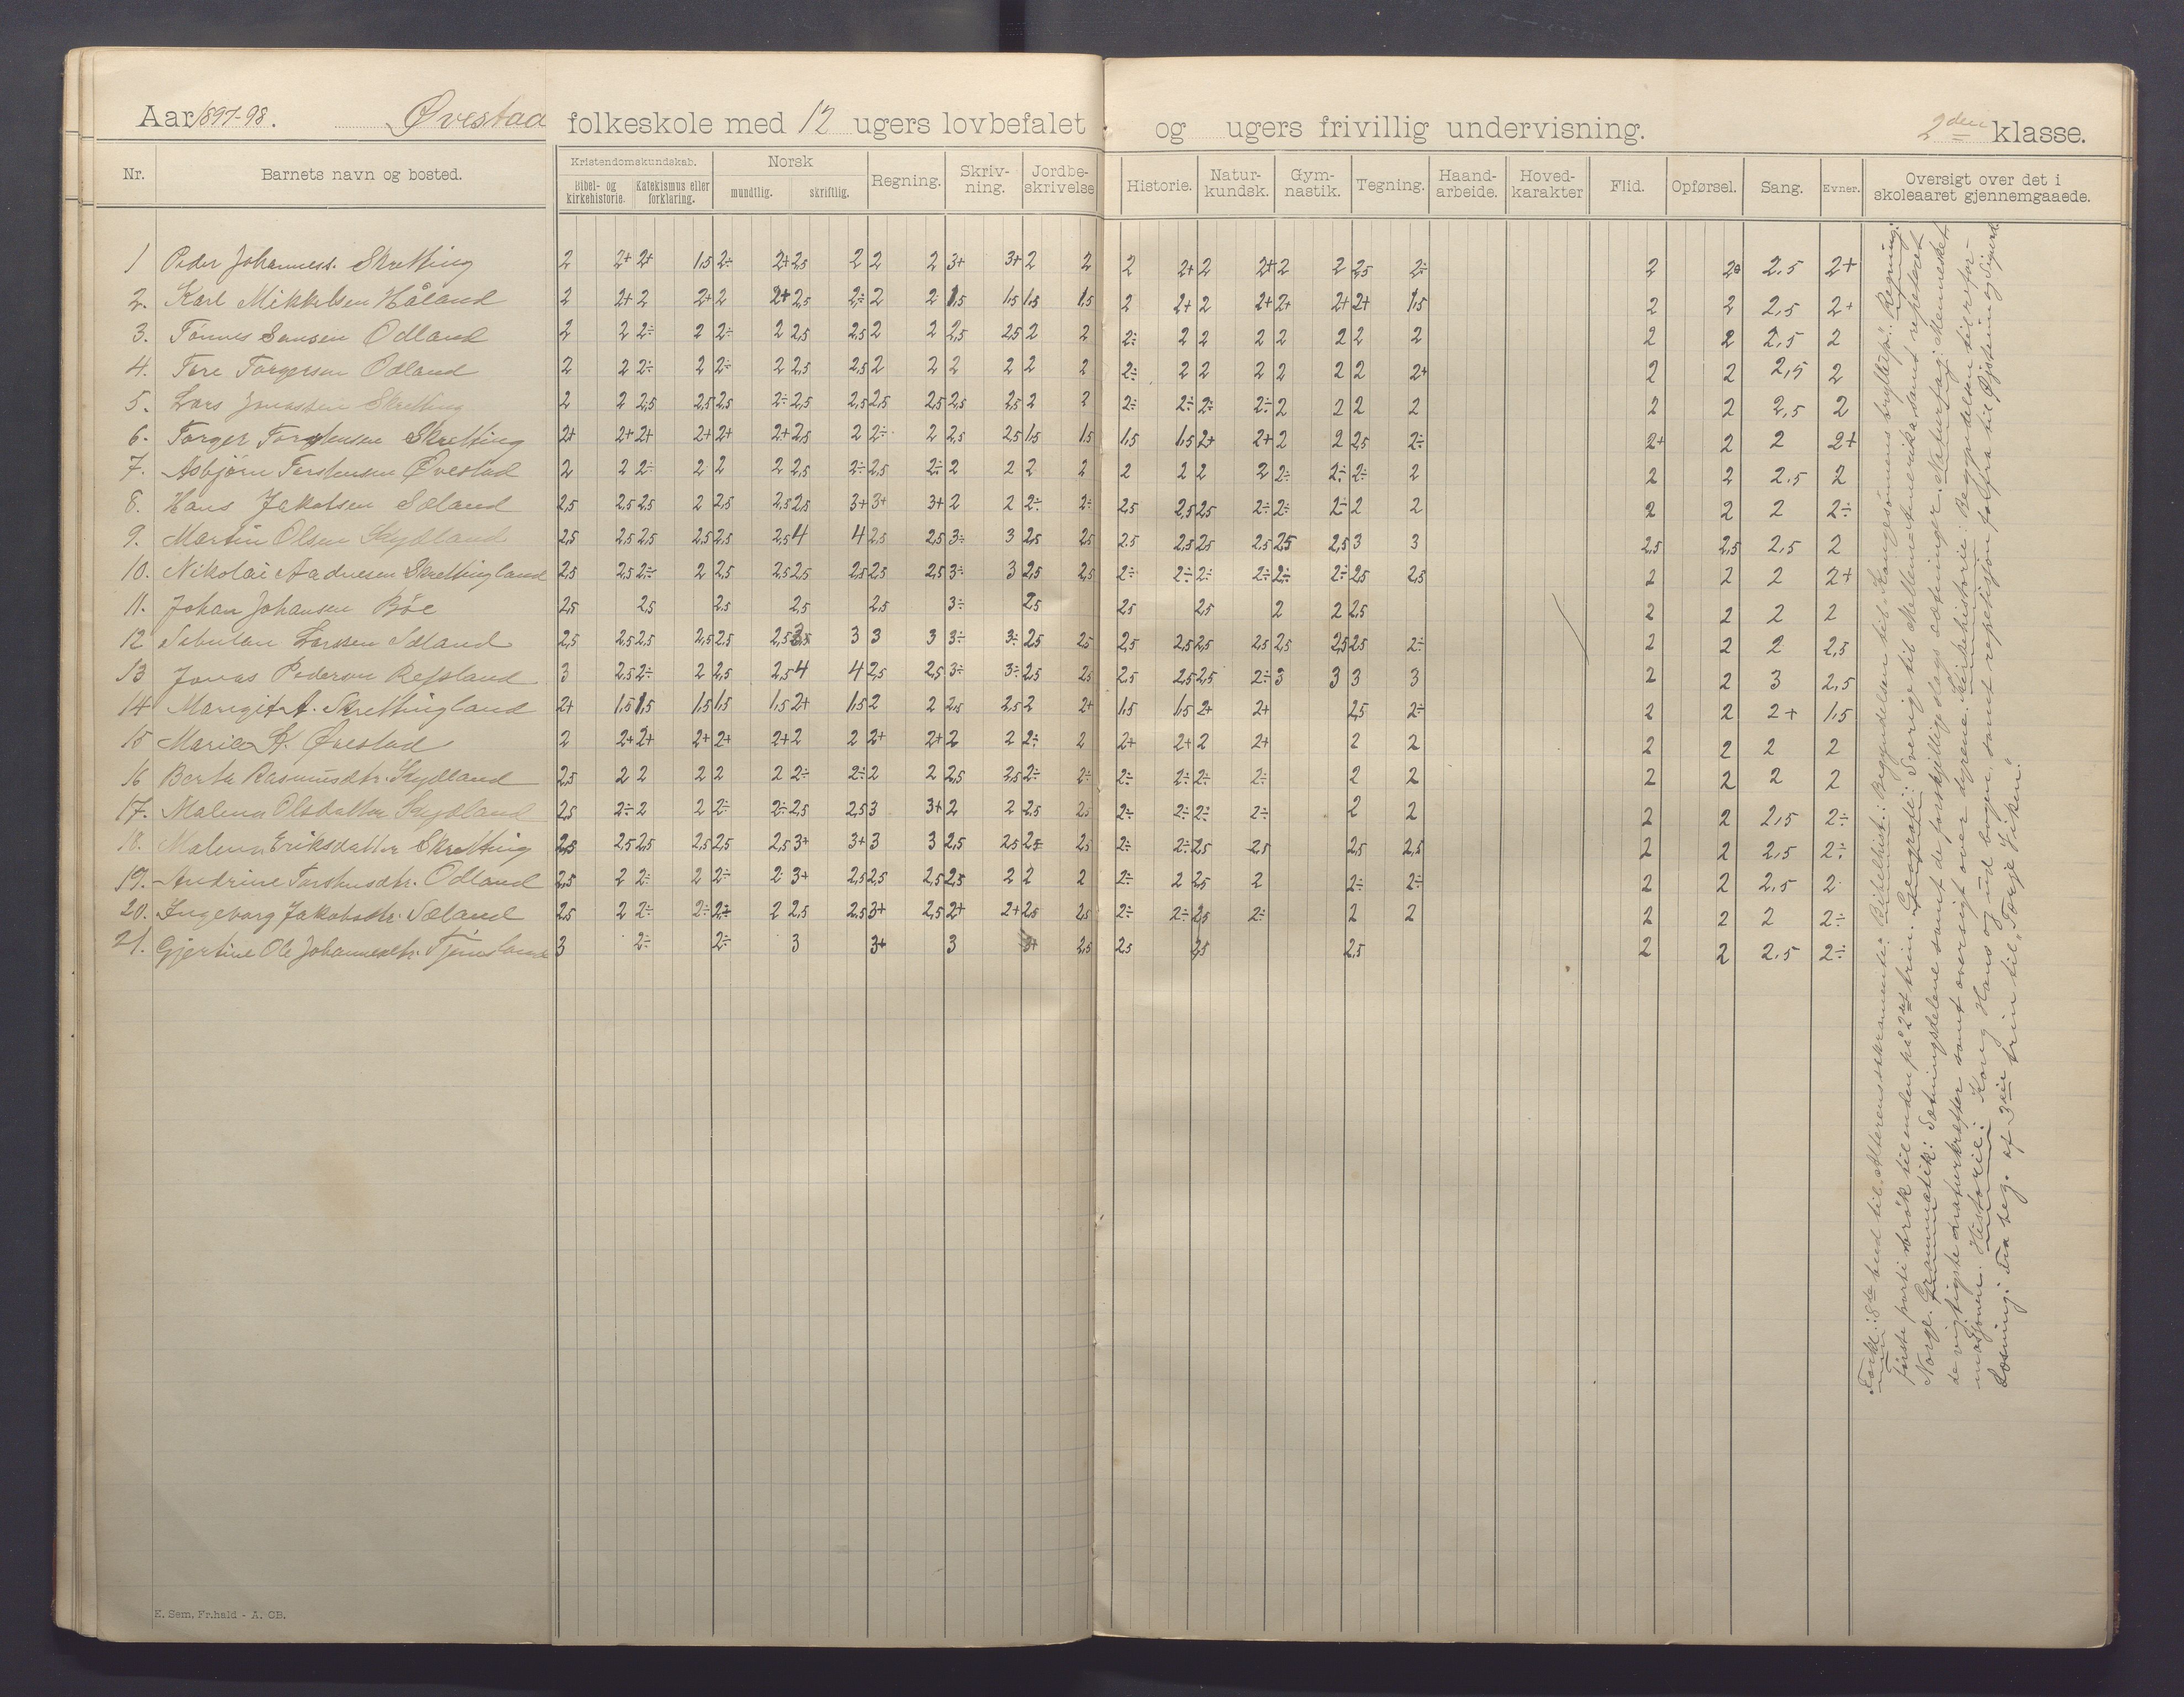 Aar 1897-98. Øvestad folkeskole med 12 ugers lovbefalet og ugers frivillig undervisning. 2den klasse.
Nr. Barnets navn og bosted. Kristendomskundskab. Bibel- og kirkehistorie. Katekismus eller forklaring. Norsk mundtlig. skriftlig. Regning. Skriv-ning. Jordbe-skrivelse Historie. Natur-kundsk. Gym-nastik. Tegning. Haand-arbeide. Hoved-karakter Flid. Opførsel. Sang. Evner. Oversigt over det i skoleaaret gjennemgaaede.
1 Peder Johanness. Skretting 2 2+ 2+ 1,5 2÷ 2+ 2,5 2 2 2 3+ 3+ 2 2 2 2+ 2 2+ 2 2 2,5 2÷ 2 2 2,5 2+
2. Karl Mikkelsen Håland 2 2+ 2 2+ 2 2+ 2,5 2÷ 2 2 1,5 1,5 1,5 1,5 2 2+ 2 2+ 2+ 2+ 2+ 1,5 2 2 2,5 2+
3. Tønnes Odland 2 2 2÷ 2 2÷ 2 2,5 2,5 2 2 2,5 2,5 2 2 2÷ 2 2 2 2 2 2 2 2 2 2,5 2
4. Tore Torgersen Odland 2 2 2÷ 2 2÷ 2 2,5 2,5 2 2 2 2 2 2 2÷ 2 2 2 2 2 2 2+ 2 2 2,5 2
5. Lars Jonassen Skretting 2 2 2,5 2,5 2,5 2÷ 2,5 2,5 2,5 2,5 2,5 2,5 2 2 2÷ 2÷ 2÷ 2÷ 2 2 2 2 2 2 2,5 2
6. Torger Torstensen Skretting 2+ 2+ 2+ 2+ 2+ 2+ 2,5 2 2÷ 2 2,5 2,5 1,5 1,5 1,5 1,5 2+ 2+ 2 2 2,5 2÷ 2+ 2 2 2+
7. Asbjørn Torstensen Øvestad 2 2 2÷ 2 2 2 2,5 2÷ 2,5 2÷ 2 2 2 2 2 2 2 2 2÷ 2÷ 2÷ 2 2 2 2,5 2
8. Hans Jakobsen Sæland 2,5 2,5 2,5 2 2,5 2,5 2,5 3+ 3+ 3+ 2 2 2÷ 2÷ 2,5 2,5 2,5 2÷ 2÷ 2÷ 2 2 2 2 2 2÷
9. Martin Olsen Skydland 2,5 2,5 2,5 2,5 2,5 2,5 4 4 2,5 2,5 3÷ 3 2,5 2,5 2,5 2,5 2,5 2,5 2,5 2,5 3 3 2,5 2,5 2,5 2
10. Nikolai Aadnesen Skrettingland 2,5 2,5 2÷ 2 2,5 2,5 2,5 2,5 2,5 2,5 3÷ 3 2,5 2,5 2÷ 2÷ 2÷ 2÷ 2÷ 2÷ 2,5 2,5 2 2 2 2+
11. Johan Johansen Bøe 2,5 2,5 2,5 2,5 2,5 3÷ 2,5 2,5 2,5 2 2 2,5 2 2 2 2
12 Sebulon Larssen Sæland 2,5 2,5 2,5 2,5 2,5 2,5 3,5 3 3 3 3÷ 3÷ 2,5 2,5 2,5 2,5 2,5 2,5 2,5 2,5 2,5 2÷ 2 2 2 2,5
13 Jonas Pedersen Refsland 3 2,5 2÷ 2 2,5 2,5 4 4 2,5 2,5 3÷ 3÷ 2,5 2,5 2,5 2,5 2,5 2÷ 3 3 3 3 2 2 3 2,5
14 Margit A. Skrettingland 2+ 1,5 1,5 1,5 1,5 1,5 2+ 1,5 2 2 2,5 2,5 2 2+ 1,5 1,5 2+ 2+ 2,5 2÷ 2 2 2+ 1,5
15 Marie Øvestad 2 2+ 2+ 2+ 2+ 2+ 2 2 2+ 2+ 2 2 2÷ 2 2+ 2+ 2 2+ 2 2 2 2 2 2
16 Berta Rasmusdtr. Skydland 2,5 2 2 2 2 2 2÷ 2÷ 2 2 2,5 2,5 2÷ 2÷ 2÷ 2÷ 2÷ 2÷ 2 2 2 2 2 2
17. Malena Olsdatter Skydland 2,5 2÷ 2 2 2÷ 2÷ 2,5 2,5 3 3+ 2 2 2,5 2,5 2÷ 2÷ 2÷ 2÷ 2 2 2 2 2,5 2÷
18. Malena Eriksdatter Skretting 2,5 2,5 2,5 2,5 2,5 2,5 3+ 3+ 3 3 2,5 2,5 2,5 2,5 2÷ 2÷ 2,5 2,5 2,5 2,5 2 2 2,5 2÷
19. Andrine Torstensdtr. Odland 2,5 2 2÷ 2 2÷ 2 3+ 2,5 2,5 2,5 2,5 2 2 2 2÷ 2 2,5 2 2÷ 2÷ 2 2 2,5 2
20. Ingeborg Jakobsdtr. Sæland 2,5 2 2÷ 2÷ 2÷ 2 2,5 2,5 3+ 2,5 2+ 2+ 2,5 2,5 2÷ 2÷ 2,5 2÷ 2 2 2 2 2 2÷
21. Gjertine Ole Johannesdtr. Tjensland 3 2÷ 2÷ 3 3+ 3 3+ 2,5 2,5 2,5 2,5 2 2 2,5 2÷
Fork.: 8de bud til Alterens sakramente. Bibelhist.: Begyndelsen til "Kongesønnens bryllup". Regning:
Første parti brøk til enden på 2det trin. Geografi: Sverige til Mellem-Amerika samt repeteret
Norge. Grammatik: Sætningsdelene samt de forskjellige slags sætninger. Naturfag: Mennesket,
de vigtigste naturkræfter samt oversigt over dyrene. Kirkehistorie: Begyndelsen til refor-
masjonen. Historie: Kong Hans og ud bogen samt repetisjon fra til Øistein og Sigurd
Læsning: Fra beg. af 3die trin til "Terje Viken."
E. Sem, Fr.hald - A. CB.